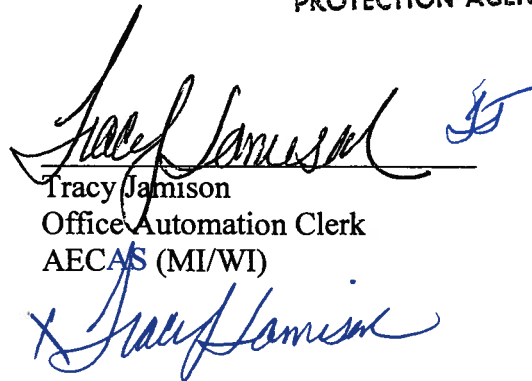 PROTECTION AGEN
Tracy Jamison
Tracy Jamison
Office Automation Clerk
AECAS (MI/WI)
X Tracy Jamison